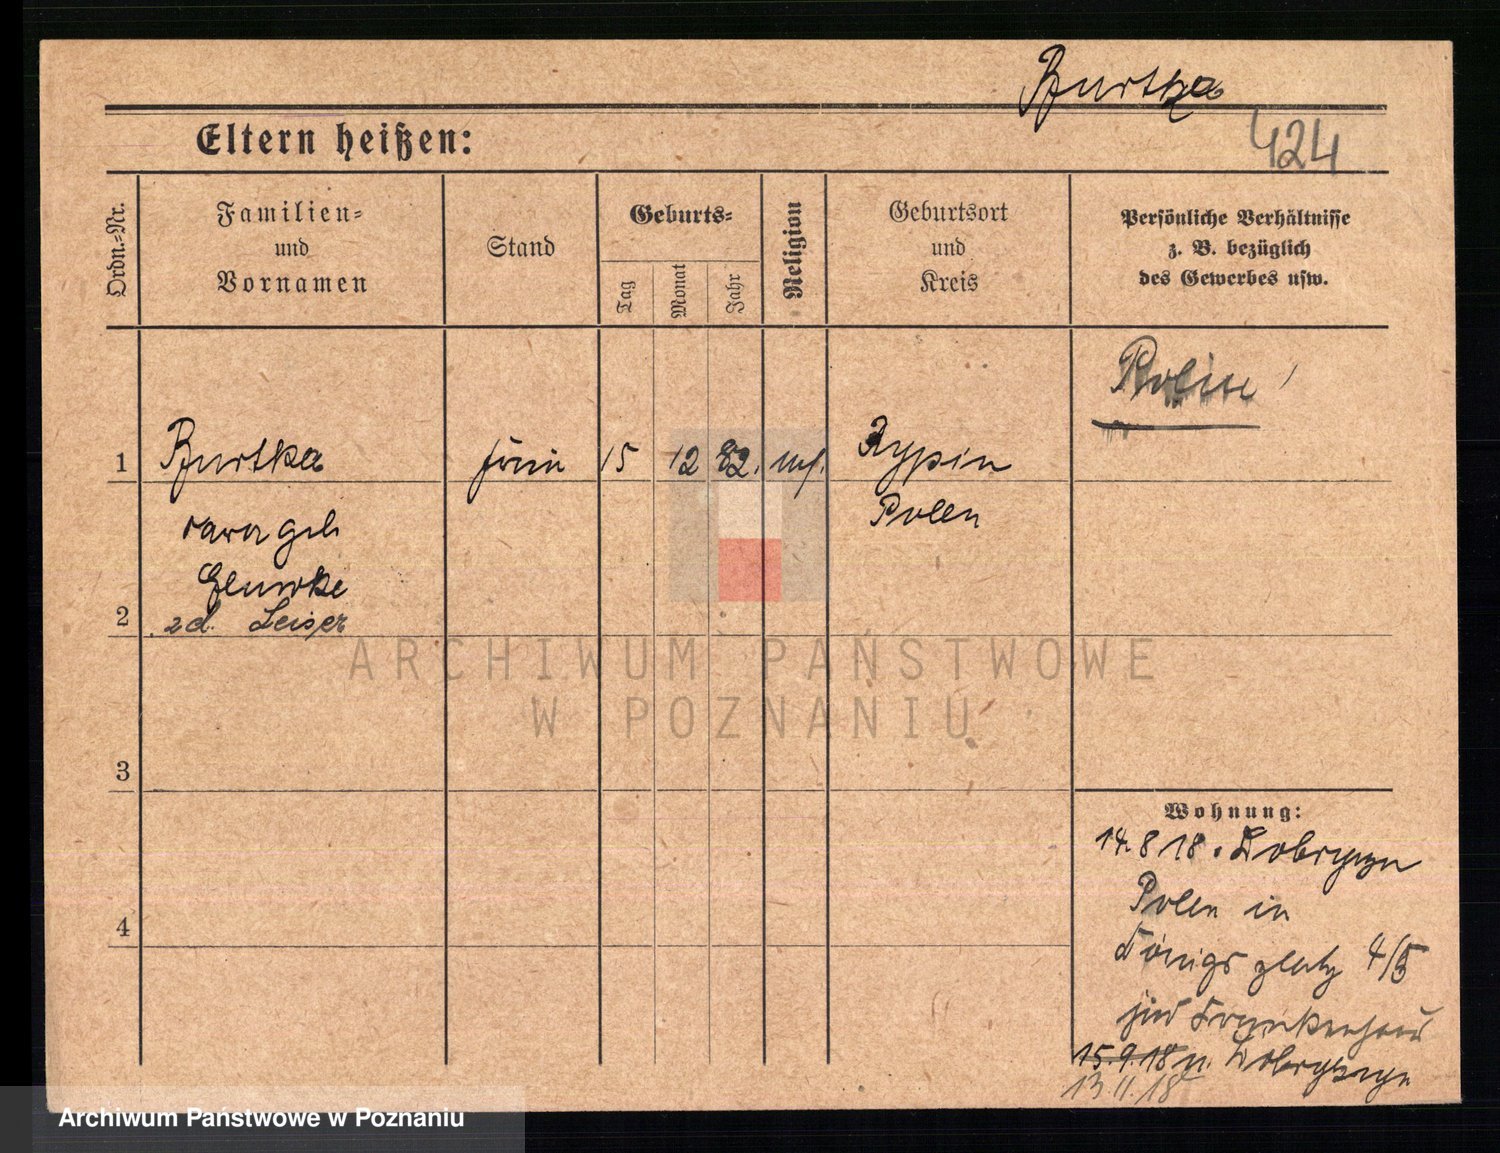 Burtka
424
Eltern heißen:
Ordn.=Nr.
Familien=
und
Vornamen
Stand
Geburts=
Tag
Monat
Jahr
Religion
Geburtsort
und
Kreis
Persönliche Verhältnisse
z. B. bezüglich
des Gewerbes usw.
1
Burtka
15
12
82.
Rypin
Polin
geb
Polen
2
Leiser
3
4
Wohnung:
14.8 18.
Polen in
Königsplatz 4/5
jüd Krankenhaus
15.9.18 n.
13.11.18
ARCHIWUM PAŃSTWOWE
W POZNANIU
Archiwum Państwowe w Poznaniu